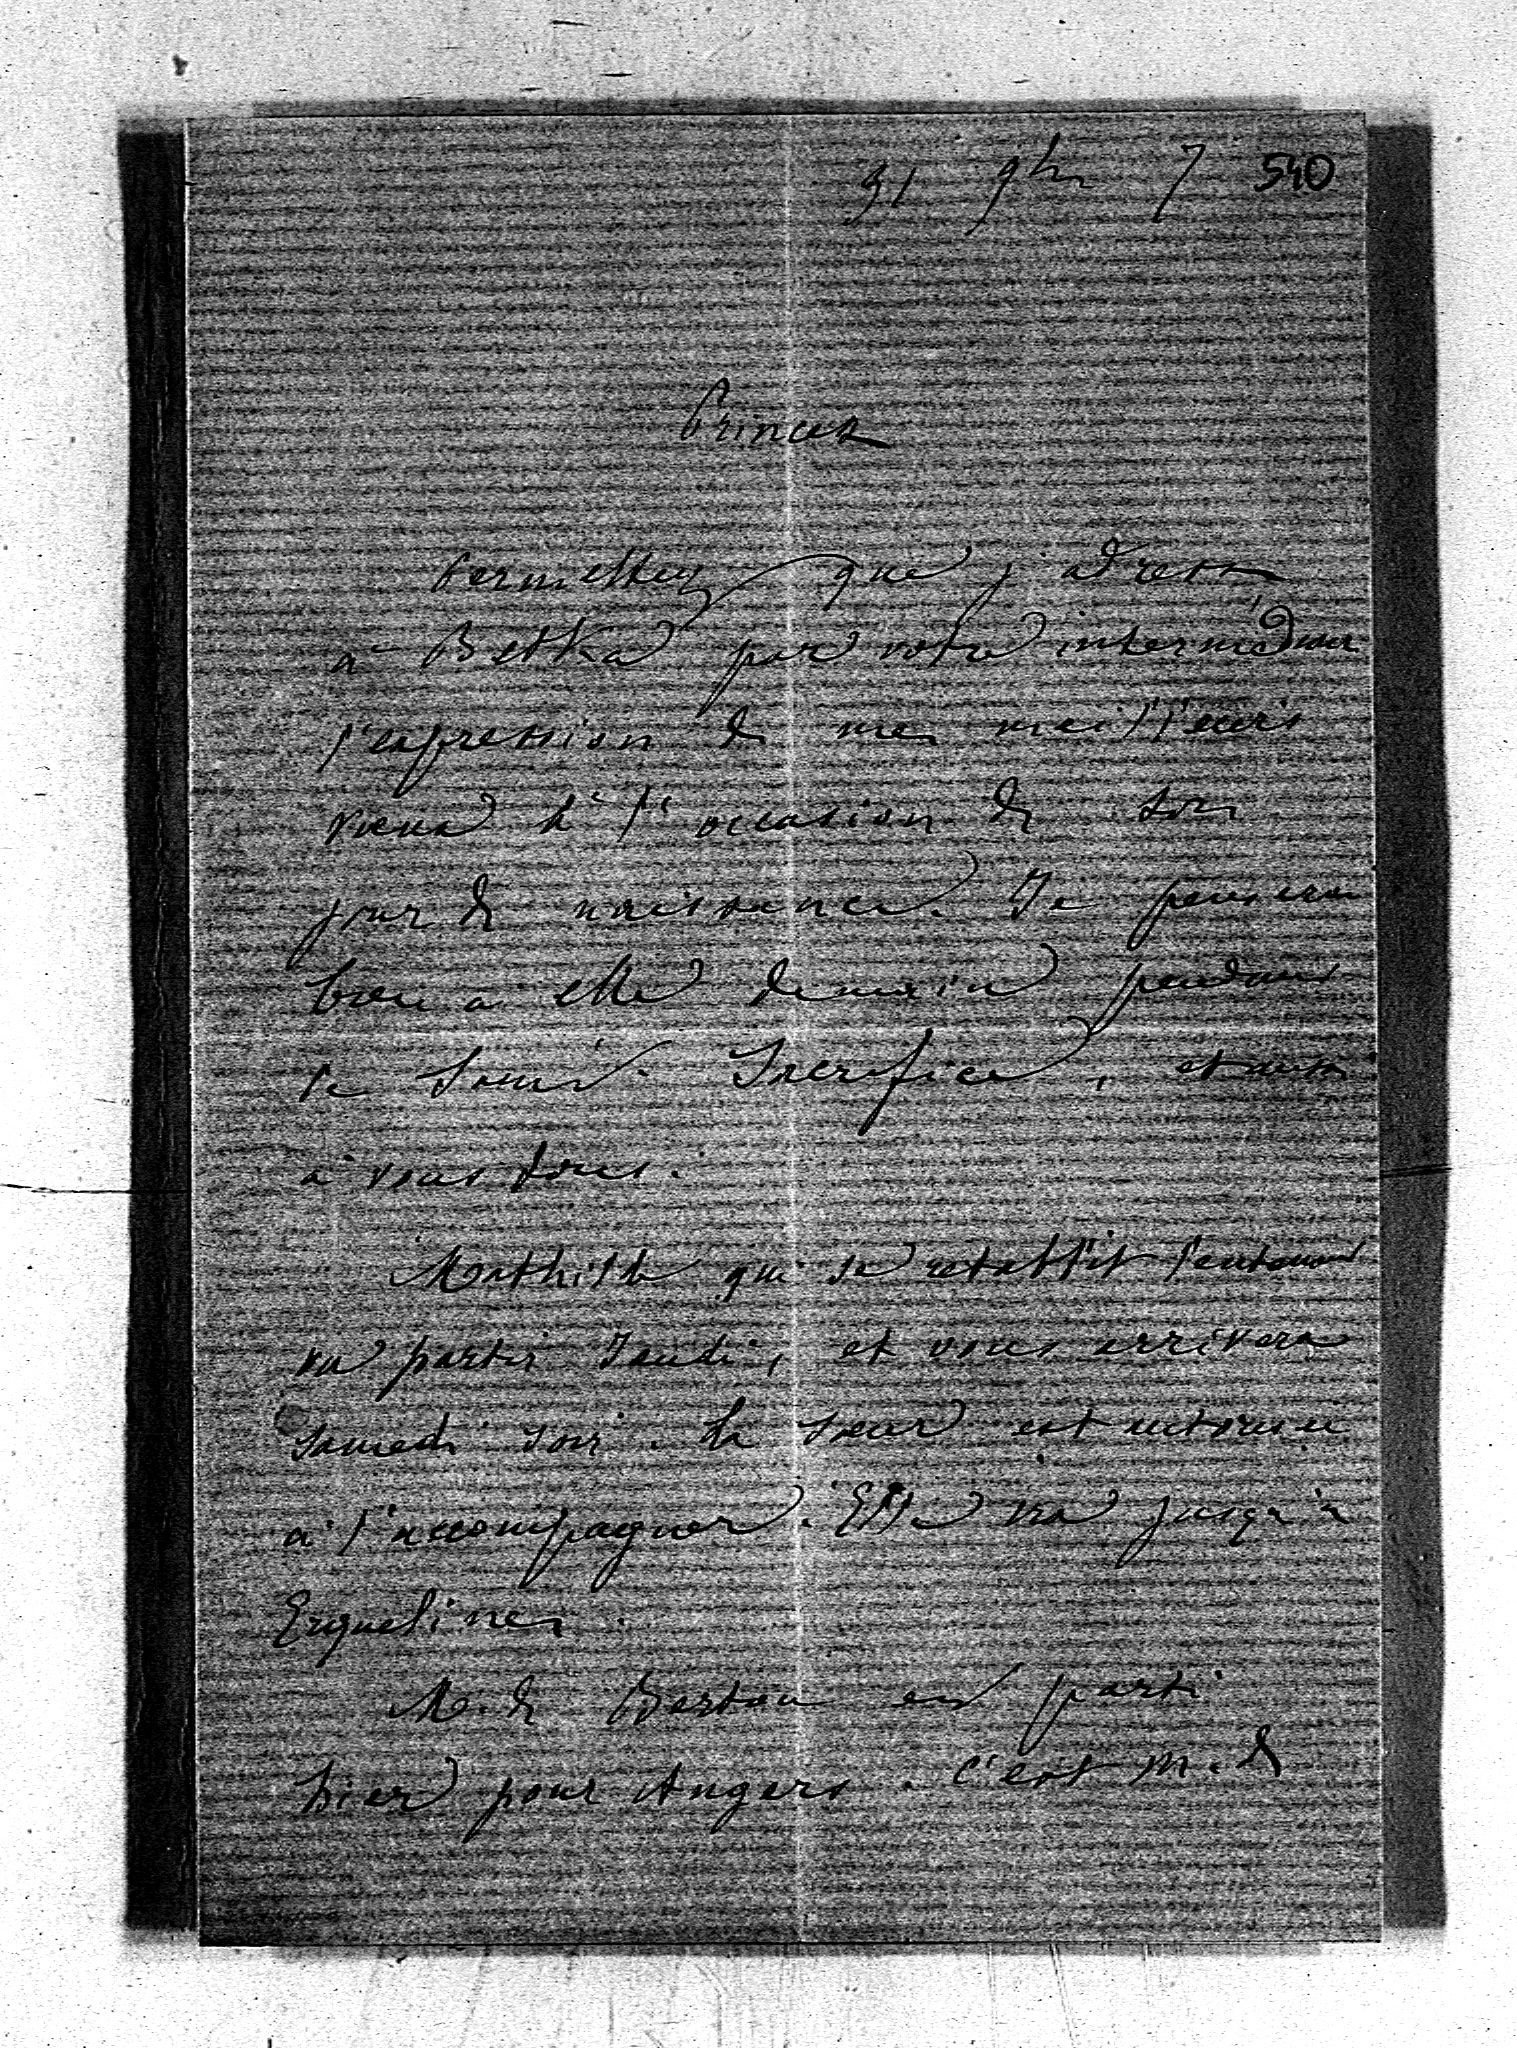 91 9bre 7 540
Princesse
Permettez que j'adresse
à Betka par votre intermédiaire
l'expression de mes meilleurs
vœux à l'occasion de son
jour de naissance. Je penserai
bien à elle demain pendant
le Saint Sacrifice, et aussi
à vous tous.
Mathilde qui se rétablit lentement
va partir Jeudi, et vous arrivera
samedi soir. La sœur est autorisée
à l'accompagner. Elle ira jusqu'à
Erquelines.
M. de Bertou est parti
hier pour Angers. C'est M. de